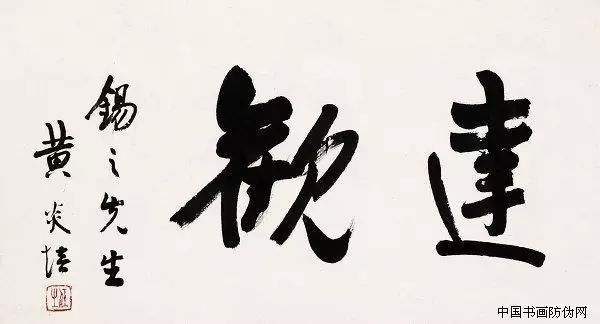 達觀
錫之先生
黄炎培
中国书画防伪网